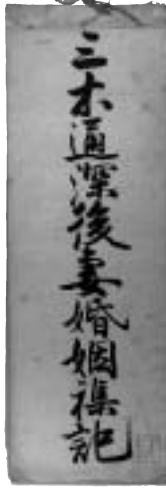 三木通深後妻婚姻雑記